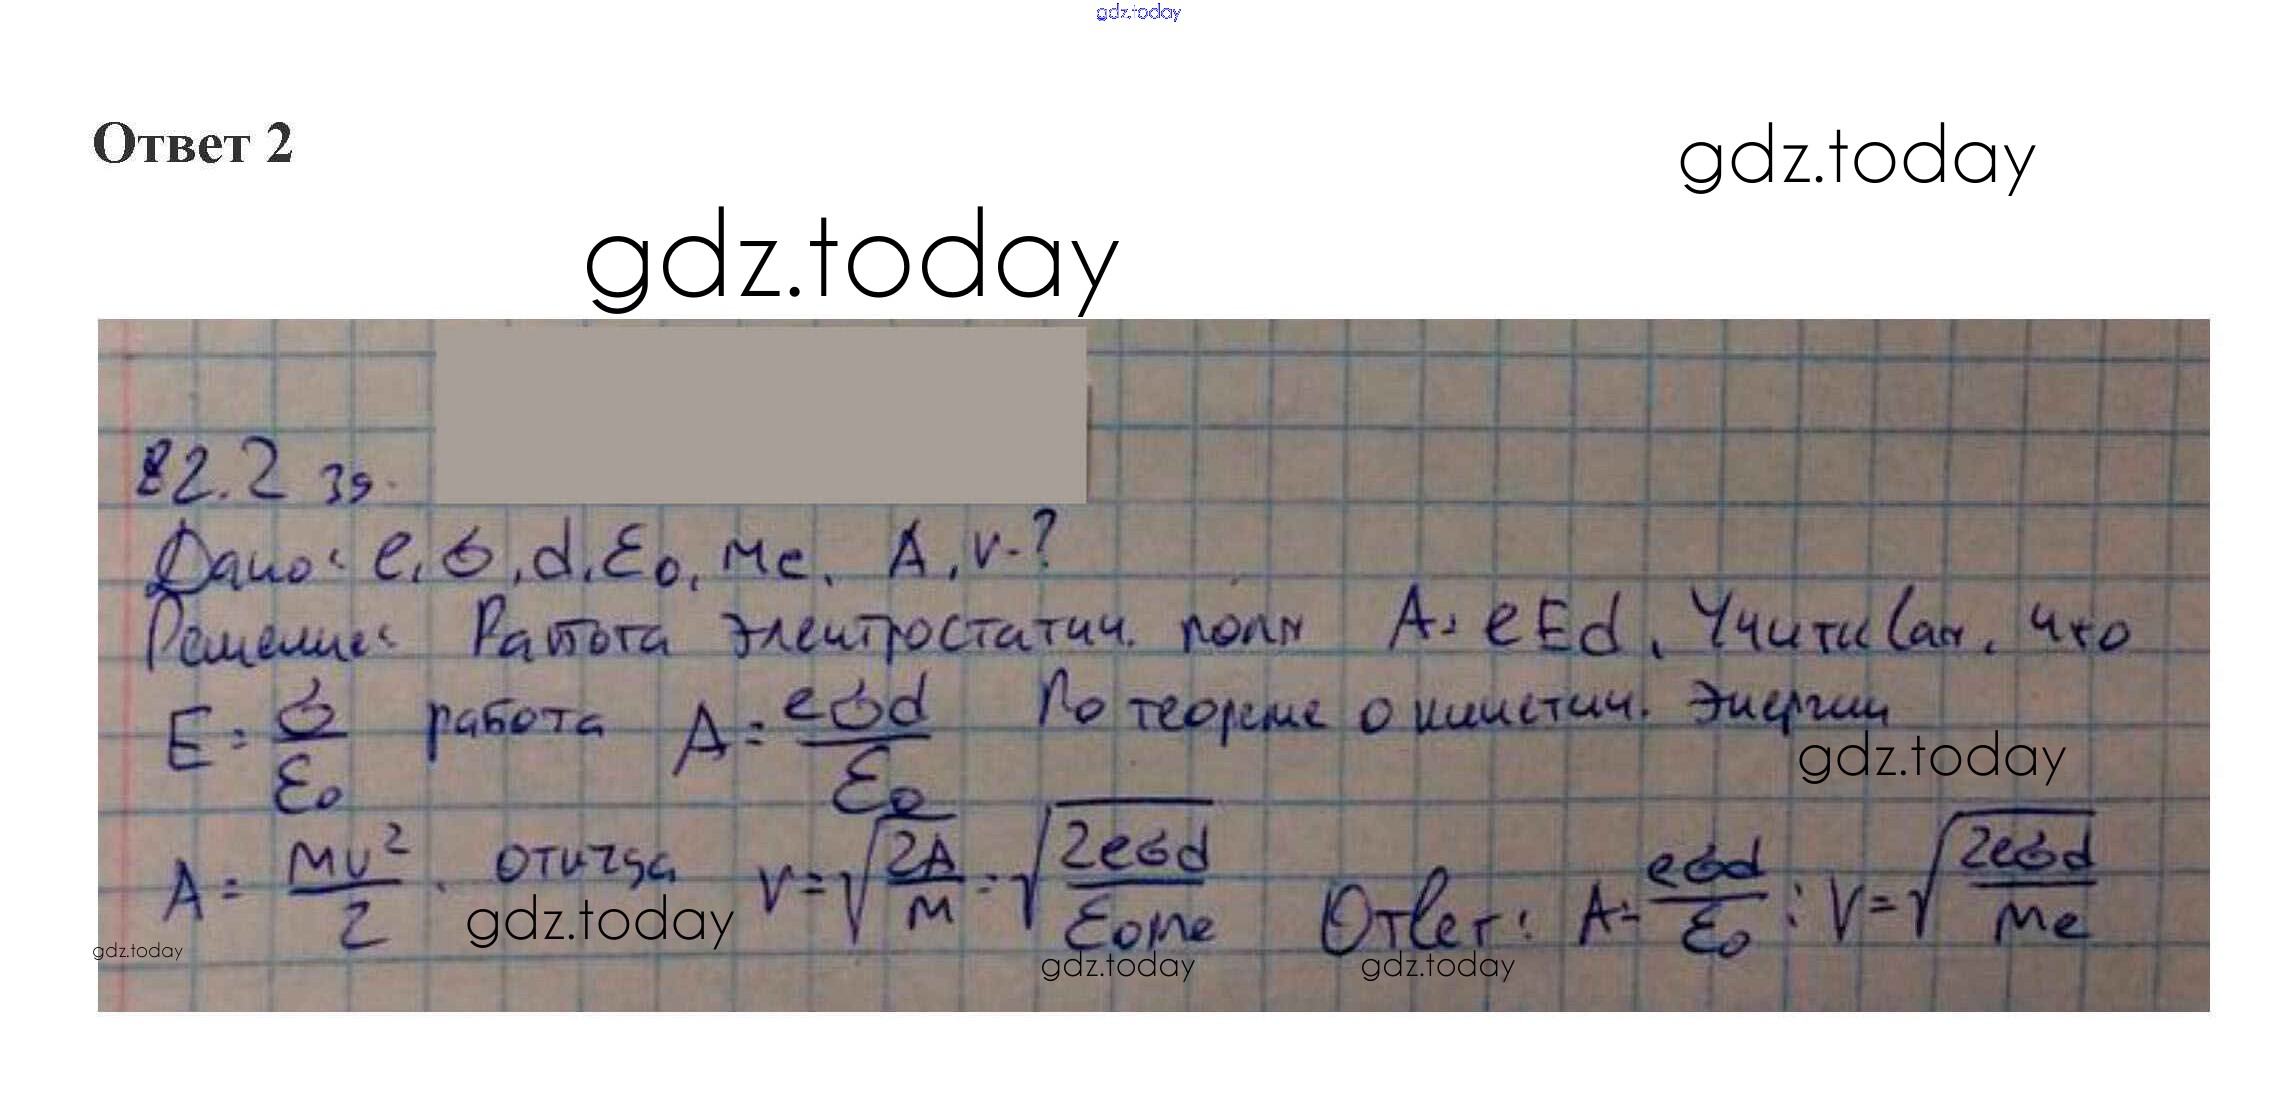 gdz.today
Ответ 2
gdz.today
gdz.today
82.2 зд.
Дано: e, σ, d, ε₀, me. A, v-?
Решение: Работа электростатич. поля A = eEd. Учитывая, что
E = σ/ε₀ работа A = eσd/ε₀ По теореме о кинетич. энергии
gdz.today
A = mv²/2. откуда v = √(2A/m) = √(2eσd/ε₀me) Ответ: A = eσd/ε₀; v = √(2eσd/me)
gdz.today
gdz.today
gdz.today
gdz.today